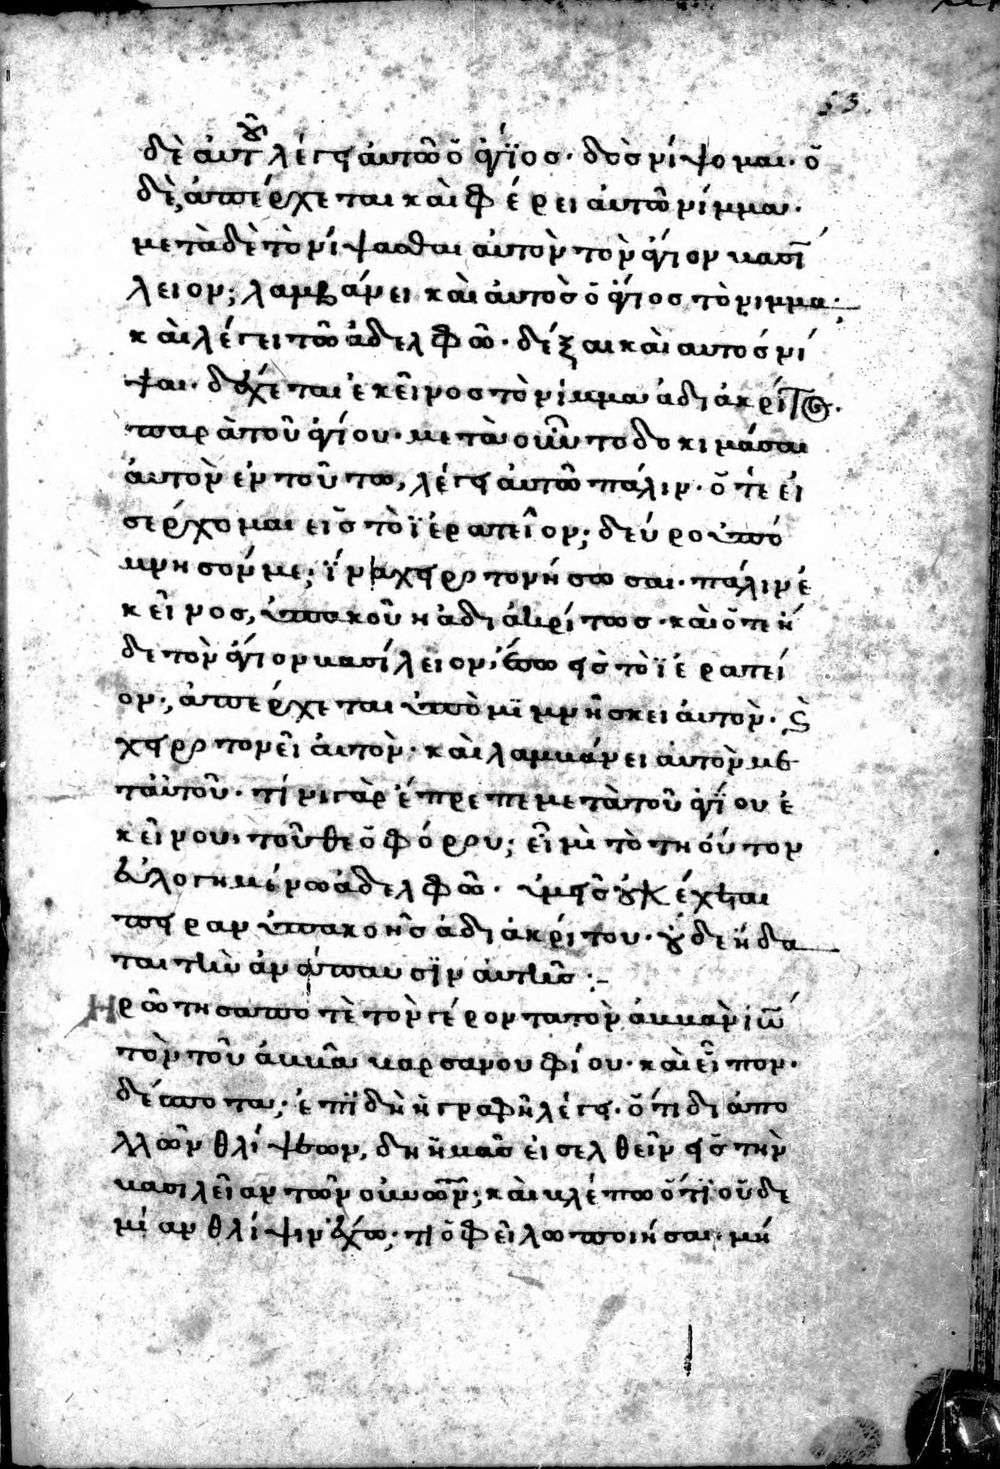 53
δὲ ἀυτοῦ λέγει ἀυτῶ ὁ ἅγϊοσ· δὸσ νίψομαι· ὁ
δὲ, ἀπέρχεται καὶ φέρει ἀυτῶ νίμμα·
μετὰ δὲ τὸ νίψασθαι ἀυτὸν τὸν ἅγιον βασΐ
λειον; λαμβάνει καὶ ἀυτὸσ ὁ ἅγϊοσ τὸ νιμμα·
καὶ λέγει τῶ ἀδελφῶ· δέξαι καὶ αυτόσ νί
ψαι· δέχεται ἐκεῖνοσ τὸ νίμμα ἀδιἀκρίτως·
παρὰ τοῦ ἁγίου· μετὰ οῦν το δοκιμάσαι
ἀυτὸν ἐν τούτω, λέγει ἀυτῶ πάλιν· ὅτε εἰ
σέρχομαι εἰσ τὸ ϊἐρατεῖον; δεύρο ὑπό
μνησόν με; ἵνα χειροτονήσω σαι· πάλιν ἐ
κεῖνοσ, ὑπακοῦη ἀδιάκρίτωσ· καὶ ὅτε ἥ
δε τὸν ἅγιον βασίλειον, ἔσω εἰσ τὸ ϊἐρατεί
ον·, ἀπέρχεται ὑπὸμϊμνῆσκει ἀυτὸν· καὶ
χειροτονεῖ ἀυτὸν· καὶ λαμβάνει ἀυτὸν με
τἀυτοῦ· τίνι γὰρ ἔπρεπε μετὰ τοῦ ἁγΐου ἐ
κεῖνου· τοῦ θεὁφόρου; εἶ μὴ τὸ τηούτον
ἐυλογημένω ἀδελφῶ· ὑμεῖσ οὐκ ἔχεται
πειραν ὑπακοῆσ ἀδιἀκρίτου· οὐδε ἤδα
ται τὴν ἀνάπαυσϊν ἀυτῆσ :-
Ηρώτησα ποτὲ τὸν γέροντα τὸν ἀββᾶν ἰω
τὸν τοῦ ἀββᾶ βαρσανουφίου· καὶ εἶπον·
δέσποτα; ἐπϊδὴ ἡ γραφὴ λέγει· ὅτι διἀ πο
λλῶν θλίψεων, δῆ ἡμᾶσ εἰσελθεῖν εἰσ τὴν
βασιλεῖαν τῶν οὐνῶν; καὶ βλέπω ὅτϊ οὖδε
μίαν θλίψιν ἔχω; τὶ ὀφεῖλω ποιήσαι· μή